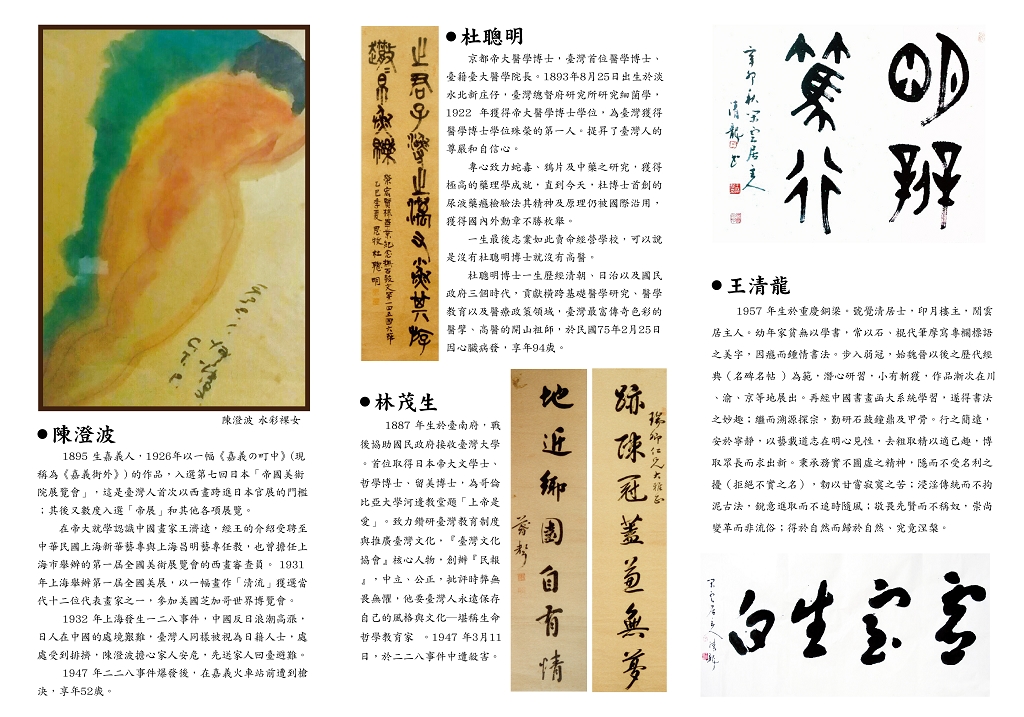 陳澄波 水彩裸女
●陳澄波
1895 生嘉義人，1926年以一幅《嘉義の町中》(現
稱為《嘉義街外》) 的作品，入選第七回日本「帝國美術
院展覽會」，這是臺灣人首次以西畫跨進日本官展的門檻
；其後又數度入選「帝展」和其他各項展覽。
在帝大就學認識中國畫家王濟遠，經王的介紹受聘至
中華民國上海新華藝專與上海昌明藝專任教，也曾擔任上
海市舉辦的第一屆全國美術展覽會的西畫審查員。 1931
年上海舉辦第一屆全國美展，以一幅畫作「清流」獲選當
代十二位代表畫家之一，參加美國芝加哥世界博覽會。
1932 年上海發生一二八事件，中國反日浪潮高漲，
日人在中國的處境艱難，臺灣人同樣被視為日籍人士，處
處受到排擠，陳澄波擔心家人安危，先送家人回臺避難。
1947 年二二八事件爆發後，在嘉義火車站前遭到槍
決，享年52歲。
●杜聰明
京都帝大醫學博士，臺灣首位醫學博士、
臺籍臺大醫學院長。1893年8月25日出生於淡
水北新庄仔，臺灣總督府研究所研究細菌學，
1922 年獲得帝大醫學博士學位，為臺灣獲得
醫學博士學位殊榮的第一人。提昇了臺灣人的
尊嚴和自信心。
專心致力蛇毒、鴉片及中藥之研究，獲得
極高的藥理學成就，直到今天，杜博士首創的
尿液藥癮檢驗法其精神及原理仍被國際沿用，
獲得國內外勳章不勝枚舉。
一生最後志業如此賣命經營學校，可以說
是沒有杜聰明博士就沒有高醫。
杜聰明博士一生歷經清朝、日治以及國民
政府三個時代，貢獻橫跨基礎醫學研究、醫學
教育以及醫療政策領域，臺灣最富傳奇色彩的
醫學、高醫的開山祖師，於民國75年2月25日
因心臟病發，享年94歲。
●林茂生
1887 年生於臺南府，戰
後協助國民政府接收臺灣大學
。首位取得日本帝大文學士、
哲學博士、留美博士，為哥倫
比亞大學河邊教堂題「上帝是
愛」。致力鑽研臺灣教育制度
與推廣臺灣文化，『臺灣文化
協會』核心人物，創辦『民報
』，中立、公正，批評時弊無
畏無懼，他要臺灣人永遠保存
自己的風格與文化—堪稱生命
哲學教育家 。1947 年3月11
日，於二二八事件中遭殺害。
跡陳冠蓋並無夢
地近鄉園自有情
明辨
篤行
辛卯秋 閑雲居主人
清龍
●王清龍
1957 年生於重慶銅梁。號覺清居士，印月樓主，閒雲
居主人。幼年家貧無以學書，常以石、棍代筆摩寫專欄標語
之美字，因癮而鍾情書法。步入弱冠，始魏晉以後之歷代經
典（名碑名帖 ）為範，潛心研習，小有斬獲，作品漸次在川
、渝、京等地展出。再經中國書畫函大系統學習，遂得書法
之妙趣；繼而溯源探宗，勤研石鼓鐘鼎及甲骨。行之簡遠，
安於寧靜，以藝載道志在明心見性，去粗取精以適己趣，博
取眾長而求出新。秉承務實不圖虛之精神，隱而不受名利之
擾（拒絕不實之名），韌以甘嘗寂寞之苦；浸淫傳統而不拘
泥古法，銳意進取而不追時隨風；敬畏先賢而不稱奴，崇尚
變革而非流俗；得於自然而歸於自然、究竟涅槃。
虛室生白